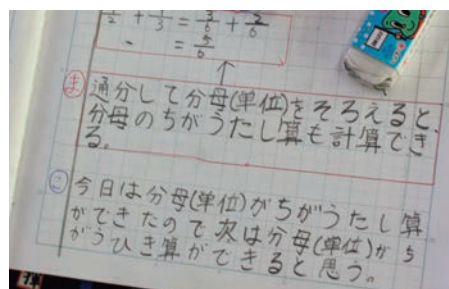 1/2 + 1/3 = 3/6 + 2/6
= 5/6
ま 通分して分母(単位)をそろえると、
分母のちがうたし算も計算でき
る。
こ 今日は分母(単位)がちがうたし算
ができたので次は分母(単位)がち
がうひき算ができると思う。